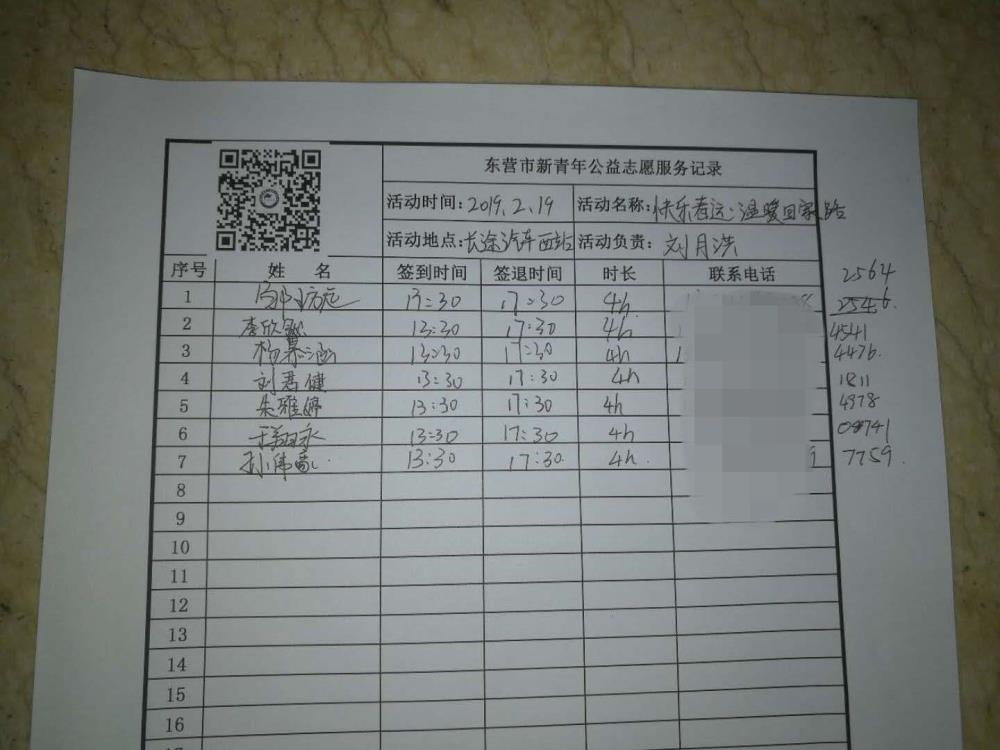 东营市新青年公益志愿服务记录
活动时间：2019.2.19 活动名称：快乐春运·温暖回家路
活动地点：长途汽车西站 活动负责：刘月洪
序号 姓 名 签到时间 签退时间 时长 联系电话 2564
1 13:30 17:30 4h 2546.
2 李欣 13:30 17:30 4h 4541
3 杨慕涵 13:30 17:30 4h 4476.
4 刘君健 13:30 17:30 4h 1811
5 朱雅婷 13:30 17:30 4h 4978
6 13:30 17:30 4h
7 孙伟 13:30 17:30. 4h. 7759.
8
9
10
11
12
13
14
15
16